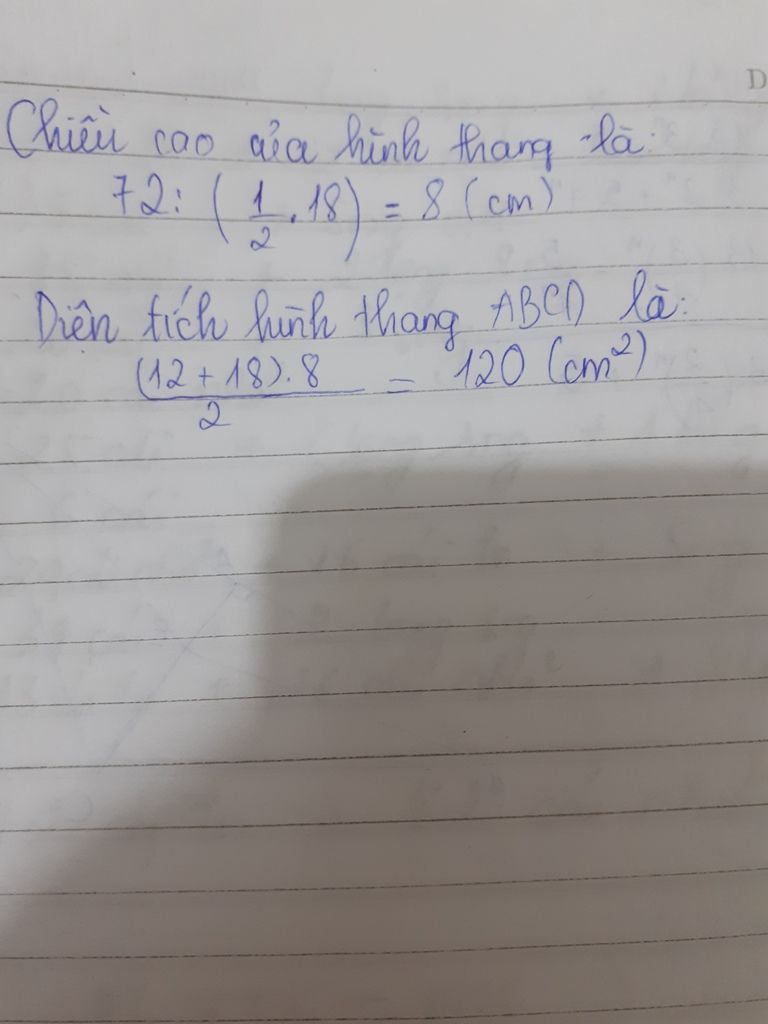 D
Chiều cao của hình thang là:
72: (1/2 . 18) = 8 (cm)
Diện tích hình thang ABCD là:
(12 + 18). 8 / 2 = 120 (cm²)